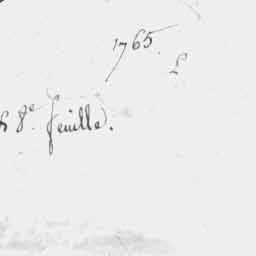 1765.
8e. feuille.